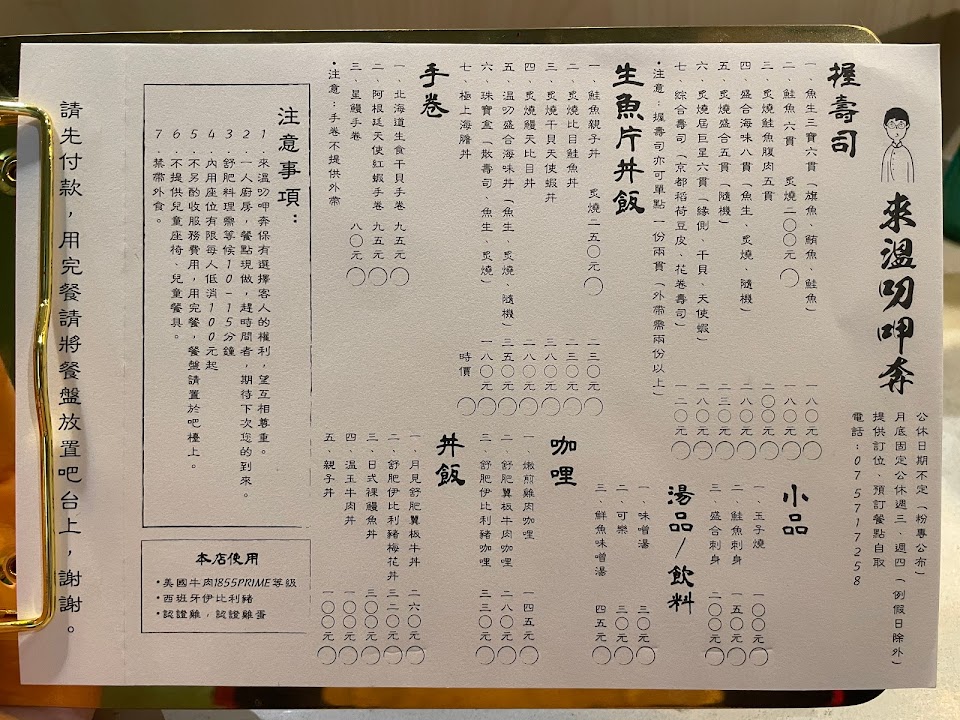 來溫叨呷奔
公休日期不定（粉專公布）
月底固定公休週三、週四（例假日除外）
提供訂位、預訂餐點自取
電話：075717258
握壽司
一、魚生三寶六貫（旗魚、鮪魚、鮭魚） 一八〇元
二、鮭魚六貫 炙燒二〇〇元 一八〇元
三、炙燒鮭魚腹肉五貫 二〇〇元
四、盛合海味八貫（魚生、炙燒、隨機） 二八〇元
五、炙燒盛合五貫（隨機） 二三〇元
六、炙燒居巨星六貫（緣側、干貝、天使蝦） 二八〇元
七、綜合壽司（京都稻荷豆皮、花卷壽司） 一二〇元
•注意：握壽司亦可單點一份兩貫（外帶需兩份以上）
生魚片丼飯
一、鮭魚親子丼 炙燒二五〇元 二三〇元
二、炙燒比目鮭魚丼 二三〇元
三、炙燒干貝天使蝦丼 二八〇元
四、炙燒鰻天比目丼 二八〇元
五、溫叨盛合海味丼（魚生、炙燒、隨機） 三五〇元
六、珠寶盒（散壽司、魚生、炙燒） 一八〇元
七、極上海膽丼 時價
手卷
一、北海道生食干貝手卷 九五元
二、阿根廷天使紅蝦手卷 九五元
三、星鰻手卷 八〇元
•注意：手卷不提供外帶
小品
一、玉子燒 一〇〇元
二、鮭魚刺身 一五〇元
三、盛合刺身 二〇〇元
湯品/飲料
一、味噌湯 三〇元
二、可樂 三〇元
三、鮮魚味噌湯 四五元
咖哩
一、嫩煎雞肉咖哩 一四五元
二、舒肥翼板牛肉咖哩 二八〇元
三、舒肥伊比利豬咖哩 三三〇元
丼飯
一、月見舒肥翼板牛丼 二六〇元
二、舒肥伊比利豬梅花丼 三二〇元
三、日式裸鰻魚丼 三〇〇元
四、溫玉牛肉丼 一〇〇元
五、親子丼 一〇〇元
注意事項：
1 來溫叨呷奔保有選擇客人的權利，望互相尊重。
2、一人廚房，餐點現做，趕時間者，期待下次您的到來。
3、舒肥料理需等候10-15分鐘
4、內用座位有限每人低消100元起
5、不另酌收服務費用，用完餐，餐盤請置於吧檯上。
6、不提供兒童座椅、兒童餐具。
7、禁帶外食。
本店使用
•美國牛肉1855PRIME等級
•西班牙伊比利豬
•認證雞，認證雞蛋
請先付款，用完餐請將餐盤放置吧台上，謝謝。